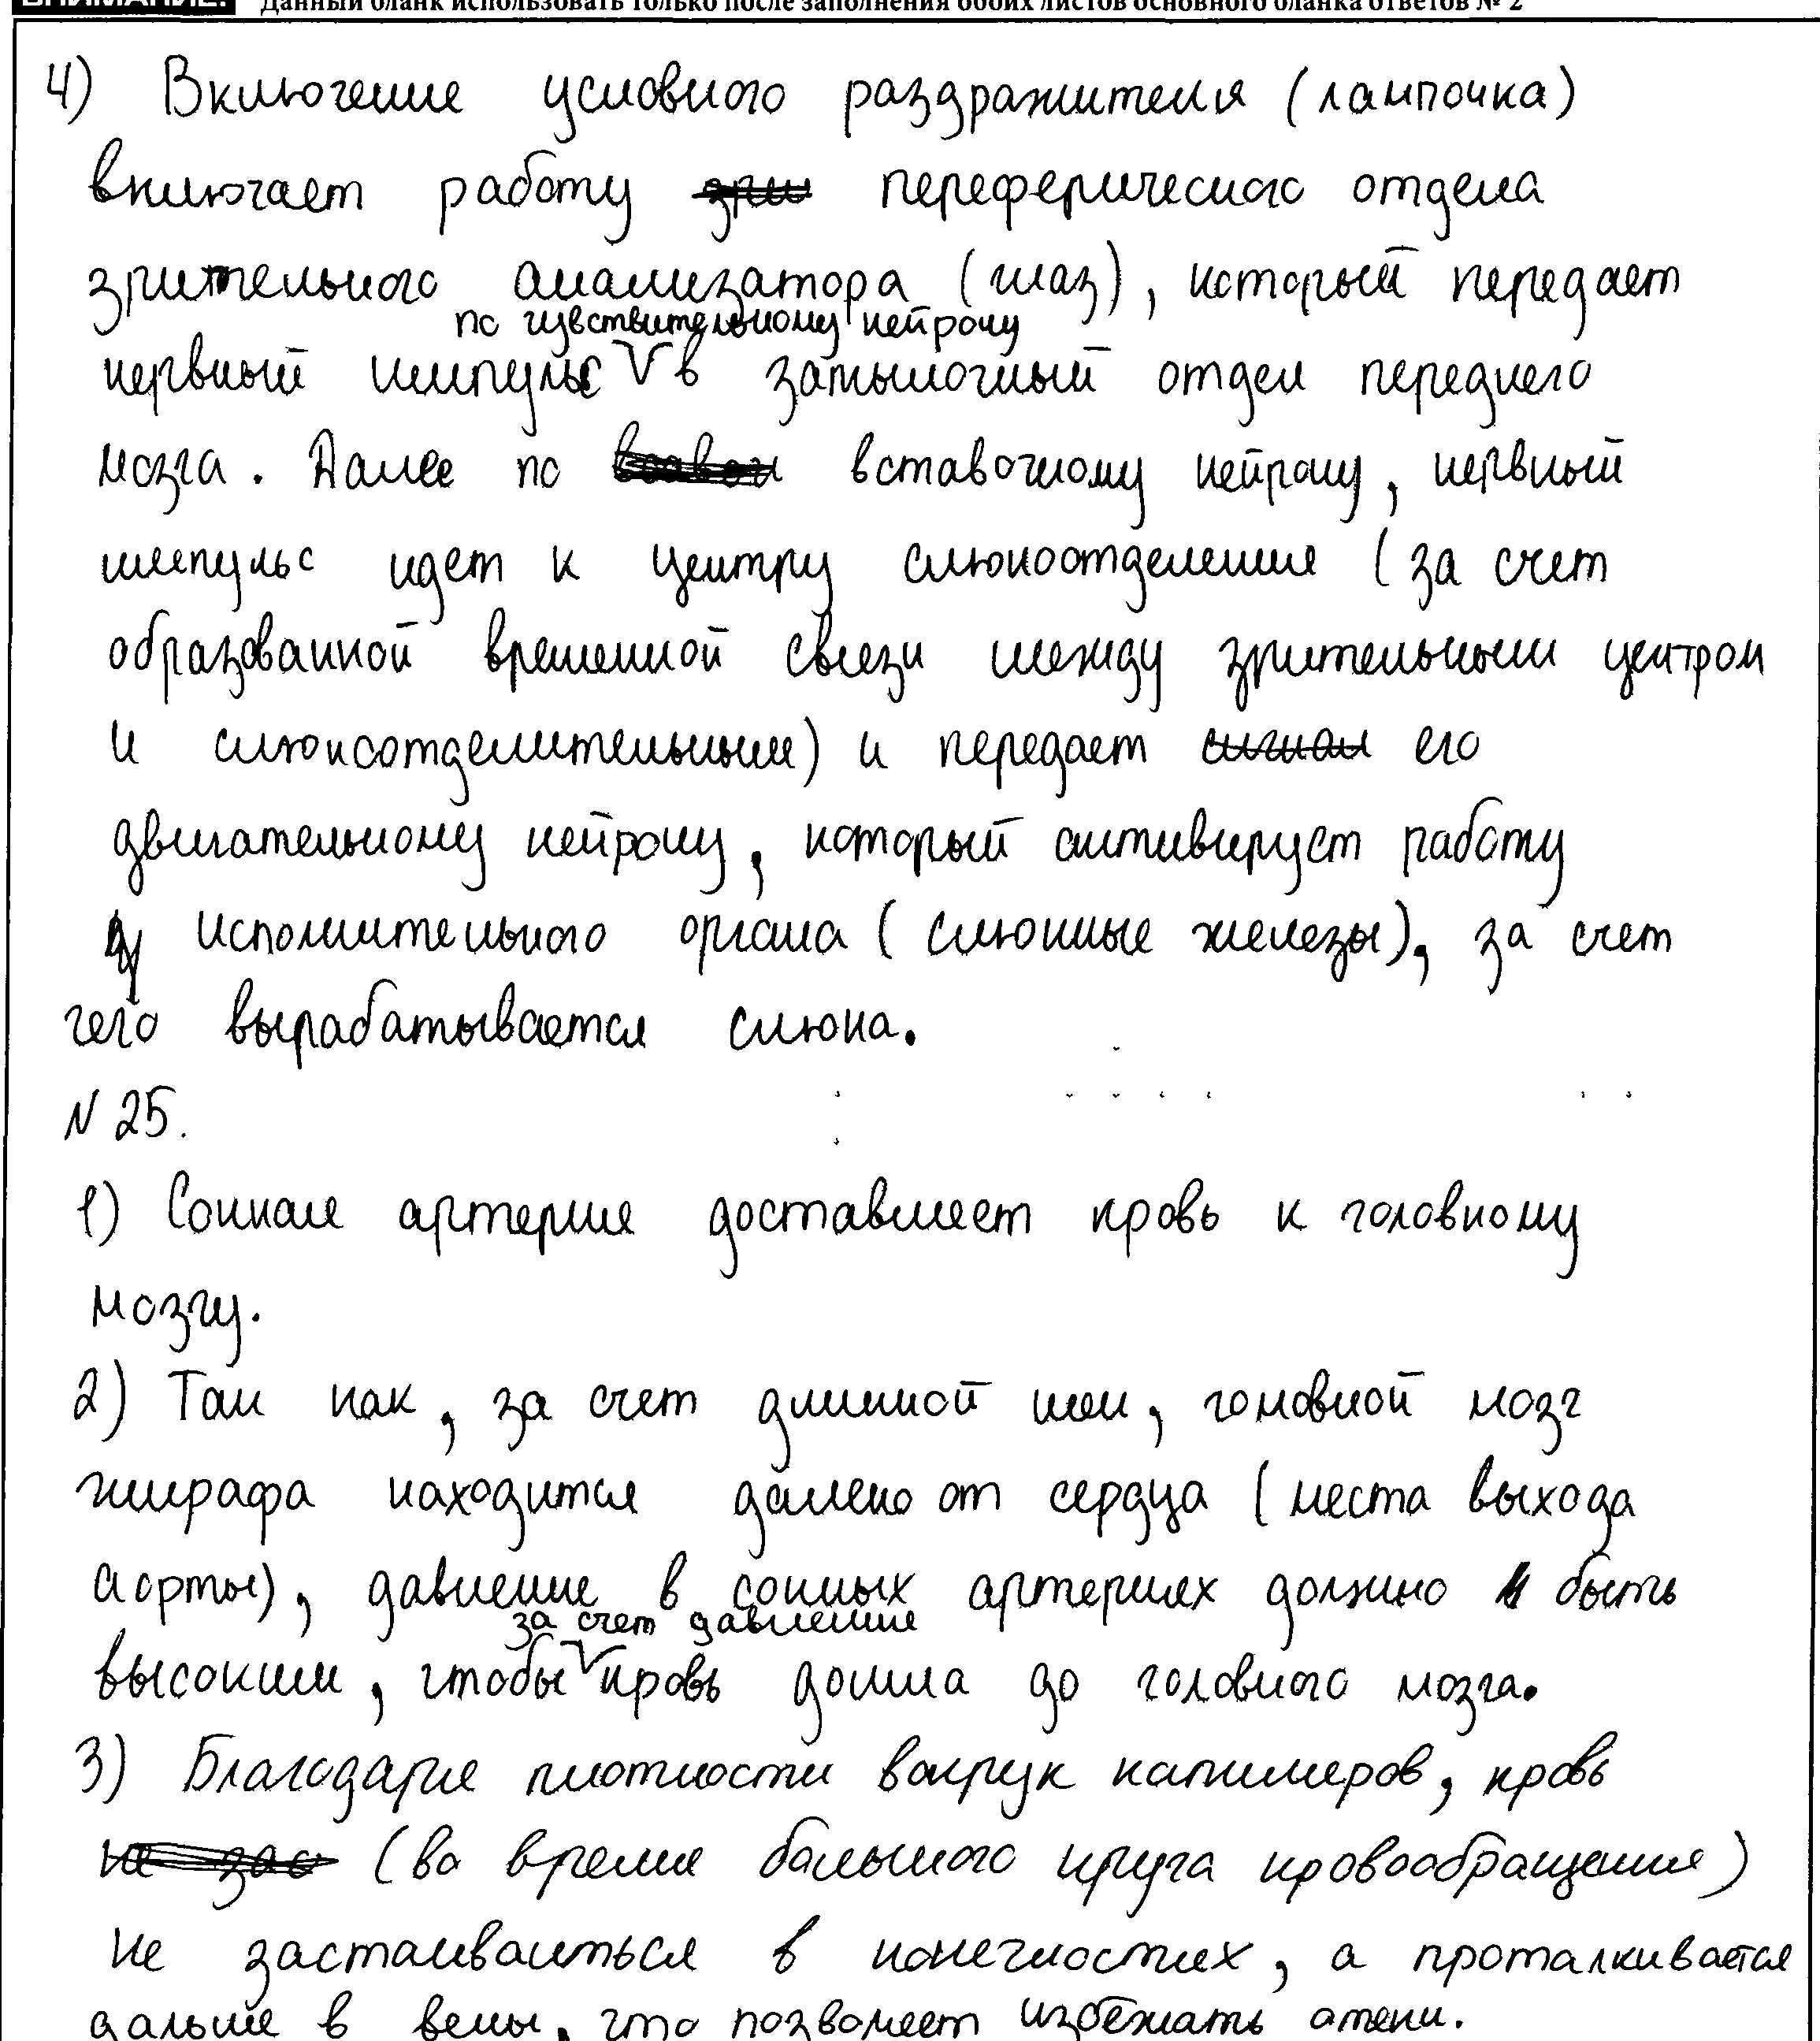 ВНИМАНИЕ! Данный бланк использовать только после заполнения обоих листов основного бланка ответов № 2
4) Включение условного раздражителя (лампочка)
включает работу ~~зри~~ переферического отдела
зрительного анализатора (глаз), который передает
по чувствительному нейрону
нервный импульс V в затылочный отдел переднего
мозга. Далее по вставочному нейрону, нервный
импульс идет к центру слюноотделения (за счет
образованной временной связи между зрительным центром
и слюноотделительным) и передает ~~сигнал~~ его
двигательному нейрону, который активирует работу
исполнительного органа (слюнные железы), за счет
чего вырабатывается слюна.
N 25.
1) Сонная артерия доставляет кровь к головному
мозгу.
2) Так как, за счет длинной шеи, головной мозг
жирафа находится далеко от сердца (места выхода
аорты), давление в сонных артериях должно быть
за счет давления
высоким, чтобы V кровь дошла до головного мозга.
3) Благодаря плотности вокрук капиляров, кровь
~~не зас~~ (во время большого круга кровообращения)
не застаиваиться в конечностях, а проталкивается
дальше в вены, что позволяет избежать отеки.